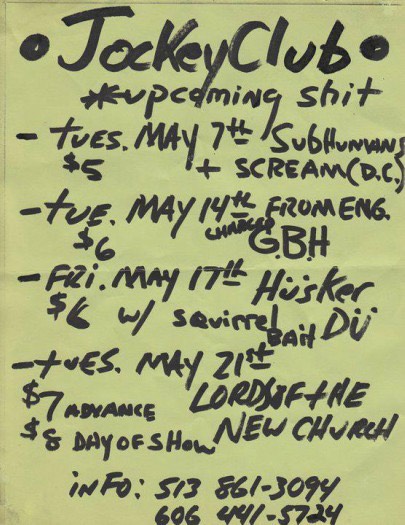 • Jockey Club •
*upcoming shit
- TUES. MAY 7th SUBHUMANS
$5 + SCREAM (D.C.)
- TUE. MAY 14th FROM ENG.
$6 CHARGED G.B.H
- FRI. MAY 17th HüsKer
$6 w/ SQUIRREL BAIT DÜ
- TUES. MAY 21st
$7 ADVANCE LORDS OF THE
$8 DAY OF SHOW NEW CHURCH
INFO: 513 861-3094
606 441-5724